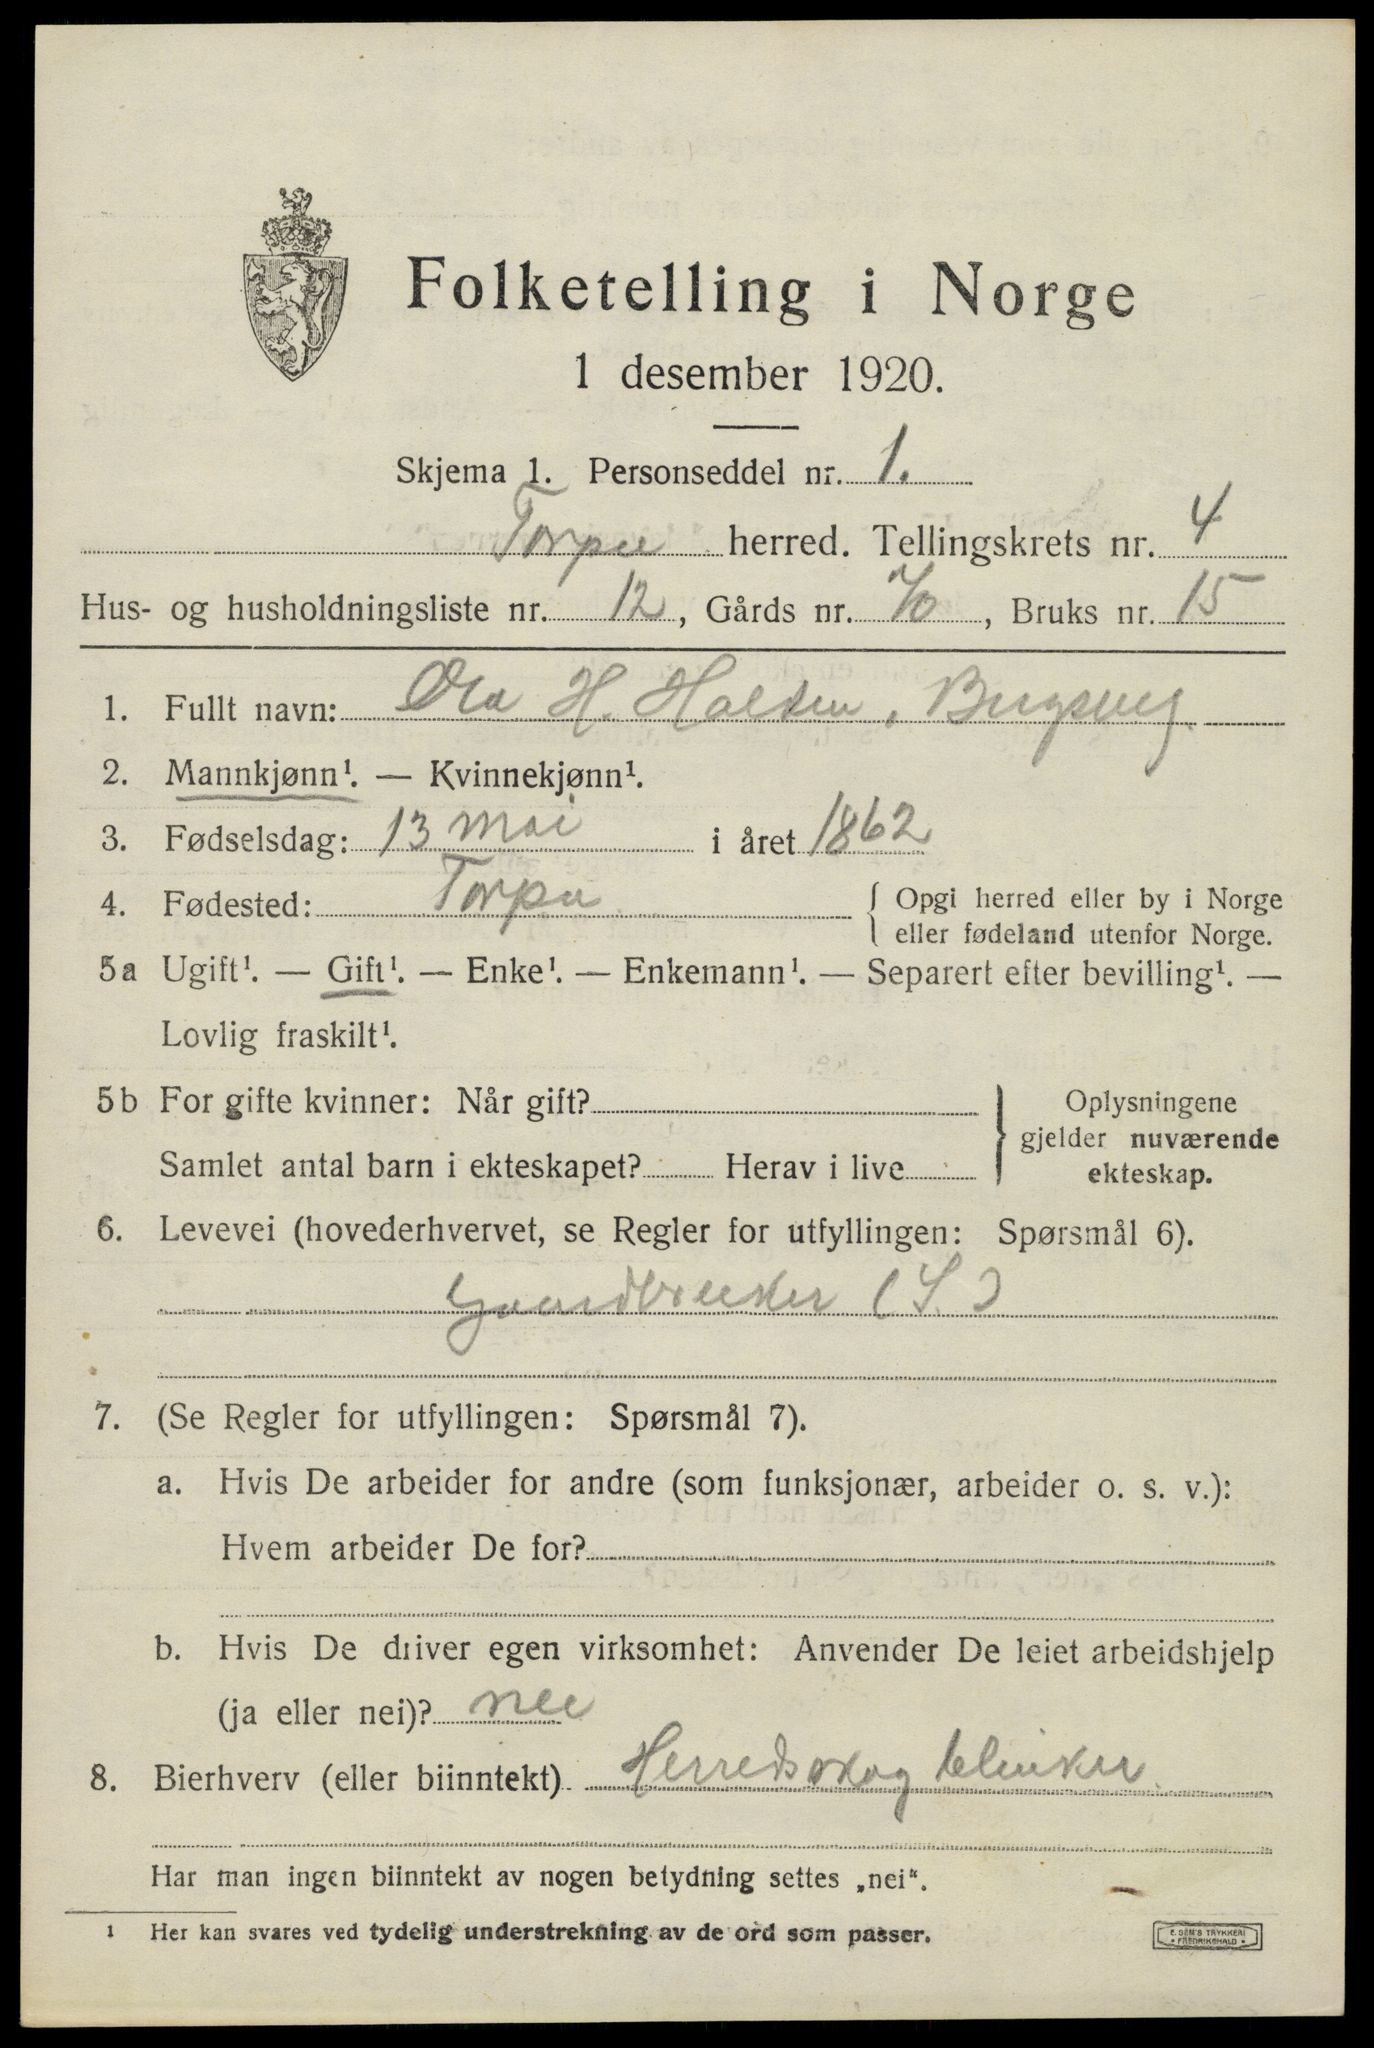 Folketelling i Norge
1 desember 1920.
Skjema 1. Personseddel nr. 1.
Torpa herred. Tellingskrets nr. 4
Hus- og husholdningsliste nr. 12, Gårds nr. 70, Bruks nr. 15
1. Fullt navn: Ola H. Holden,
2. Mannkjønn¹. — Kvinnekjønn¹.
3. Fødselsdag: 13 mai i året 1862
4. Fødested: Torpa { Opgi herred eller by i Norge
eller fødeland utenfor Norge.
5a Ugift¹. — Gift¹. — Enke¹. — Enkemann¹. — Separert efter bevilling¹. —
Lovlig fraskilt¹.
5b For gifte kvinner: Når gift? } Oplysningene
gjelder nuværende
Samlet antal barn i ekteskapet? Herav i live ekteskap.
6. Levevei (hovederhvervet, se Regler for utfyllingen: Spørsmål 6).
Gaardbruker (S.)
7. (Se Regler for utfyllingen: Spørsmål 7).
a. Hvis De arbeider for andre (som funksjonær, arbeider o. s. v.):
Hvem arbeider De for?
b. Hvis De driver egen virksomhet: Anvender De leiet arbeidshjelp
(ja eller nei)? nei
8. Bierhverv (eller biinntekt) Herredsskog blinker
Har man ingen biinntekt av nogen betydning settes „nei“.
¹ Her kan svares ved tydelig understrekning av de ord som passer.
E. SEM'S TRYKKERI
• FREDRIKSHALD •